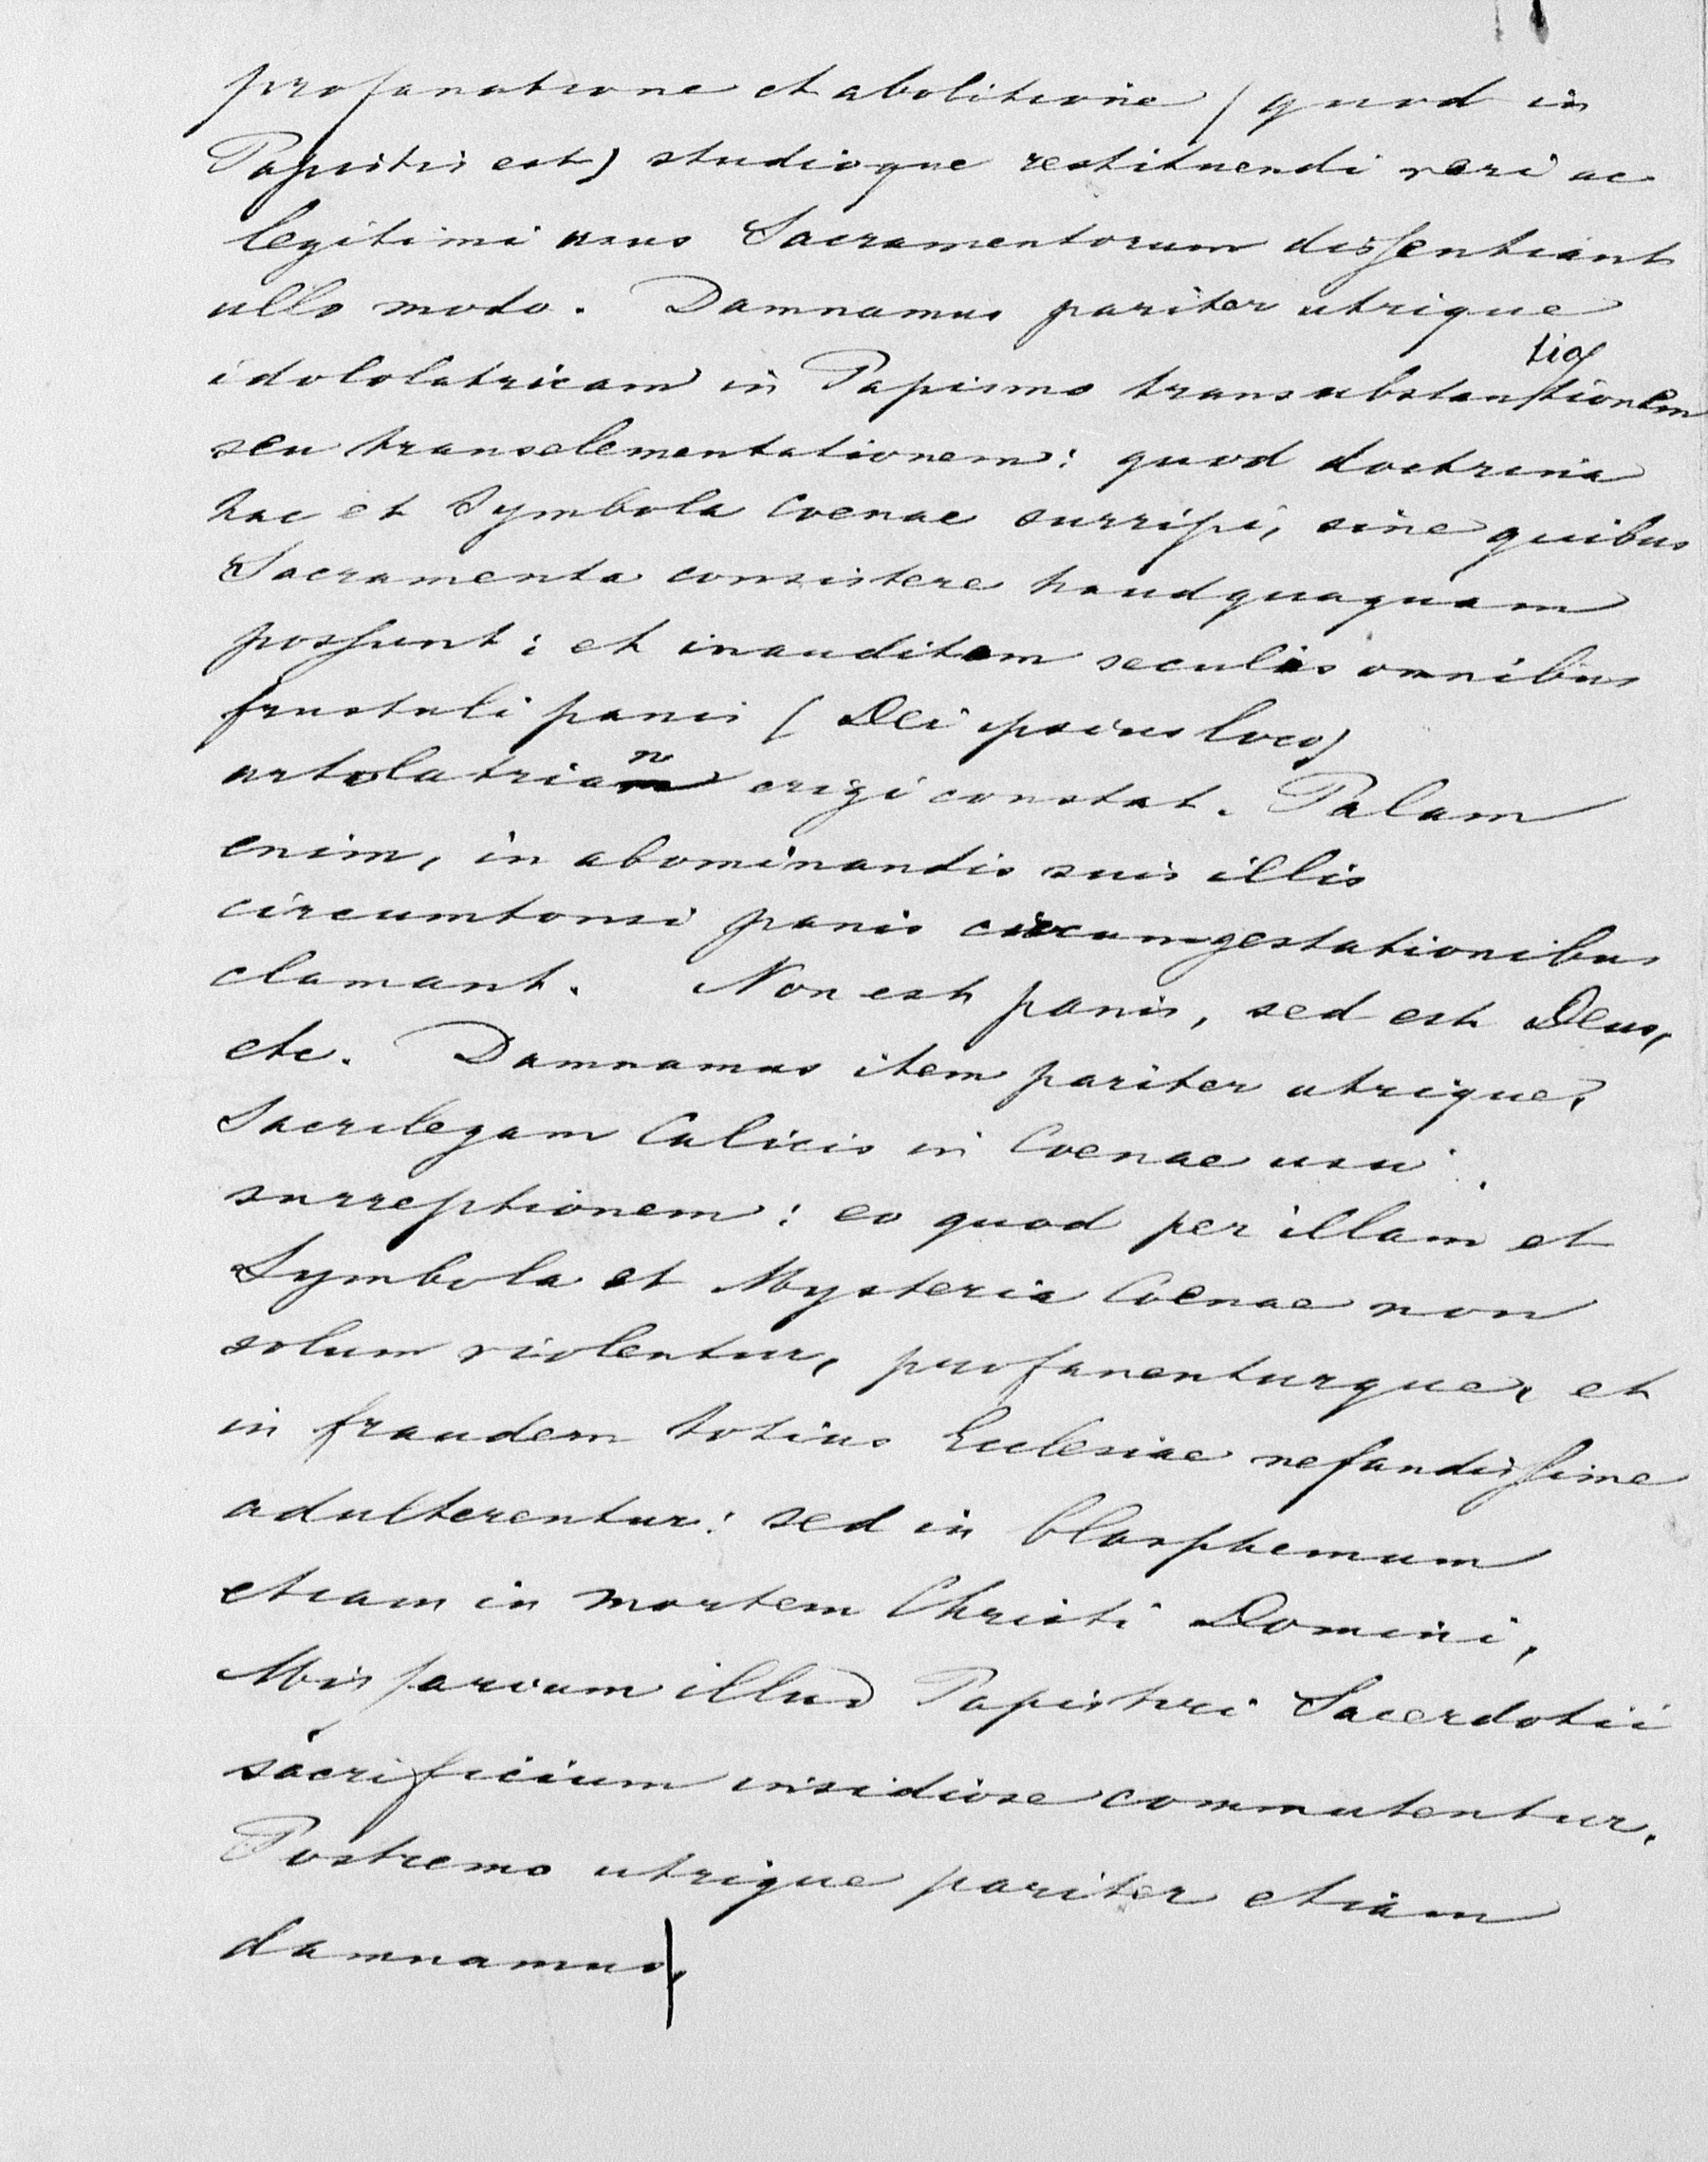 profanatione et abolitione (quod in
Papistis est) studioque restituendi veri ac
legitimi usus Sacramentorum dissentiant
ullo modo. Damnamus pariter utrique
idololatricam in Papismo transubstantiationem
seu transelementationem: quod doctrina
hac et Symbola Coenae surripi, sine quibus
Sacramenta consistere haudquaquam
possunt: et inauditam seculis omnibus
frustuli panis (Dei ipsius loco)
artolatrian erigi constat. Palam
enim, in abominandis suis illis
circumtonsi panis circumgestationibus
clamant. Non est panis, sed est Deus,
etc. Damnamus item pariter utrique,
Sacrilegam Calicis in Coenae usu
surreptionem: eo quod per illam et
Symbola et Mysteria Coenae non
solum violentur, profanenturque, et
in fraudem totius Ecclesiae nefandissime
adulterentur: sed in blasphemum
etiam in mortem Christi Domini,
Missarium illud Papistici Sacerdotii
sacrificium insidiose commutentur.
Postremo utrique pariter etiam
damnamus,